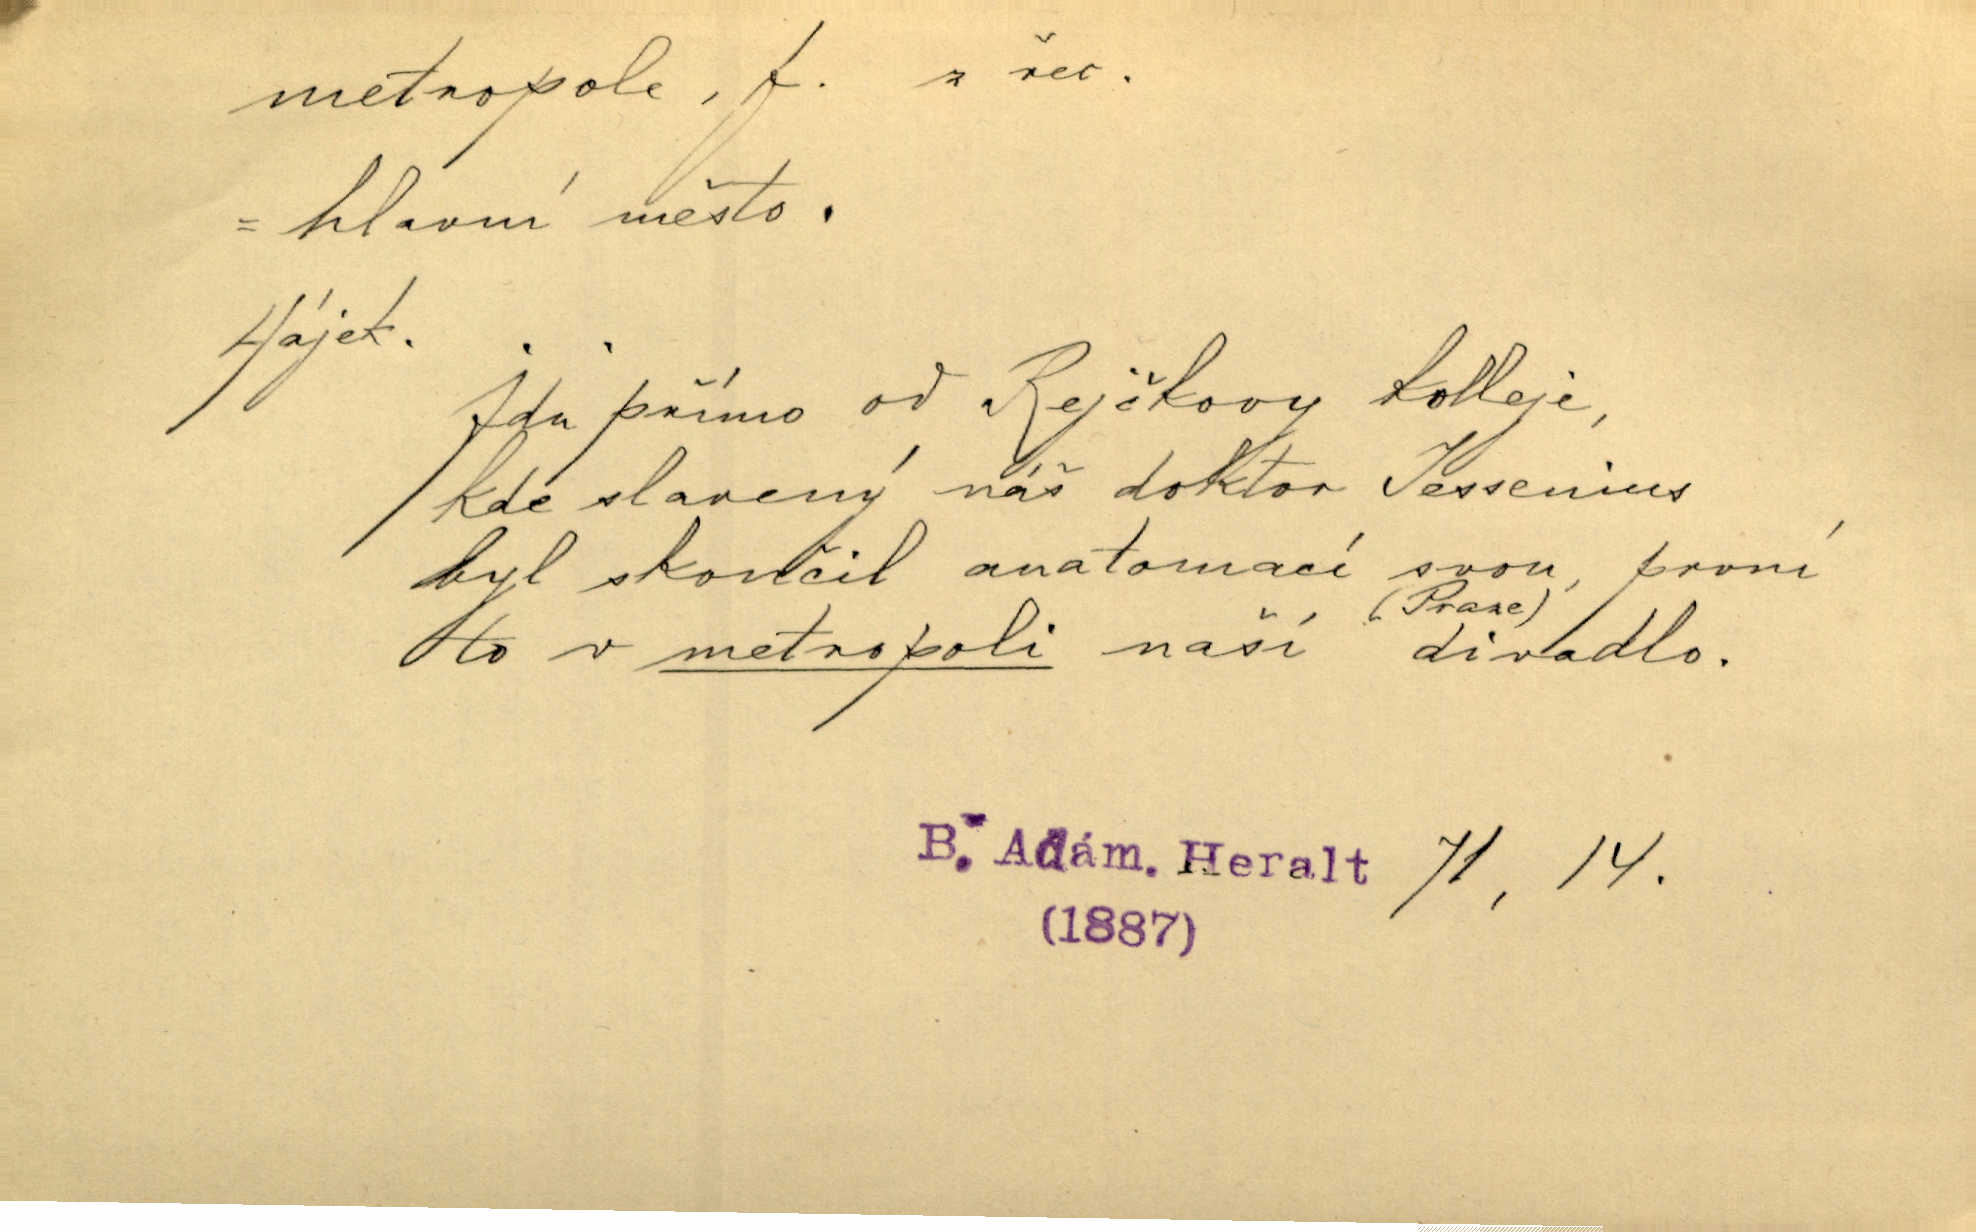 metropole, f. z řec.
= hlavní město.
Hájek. . .
Jdu přímo od Rejčkovy kolleje,
kde slavený náš doktor Jessenius
byl skončil anatomací svou, první
to v metropoli naší (Praze) divadlo.
B. Adám. Heralt 71, 14.
(1887)